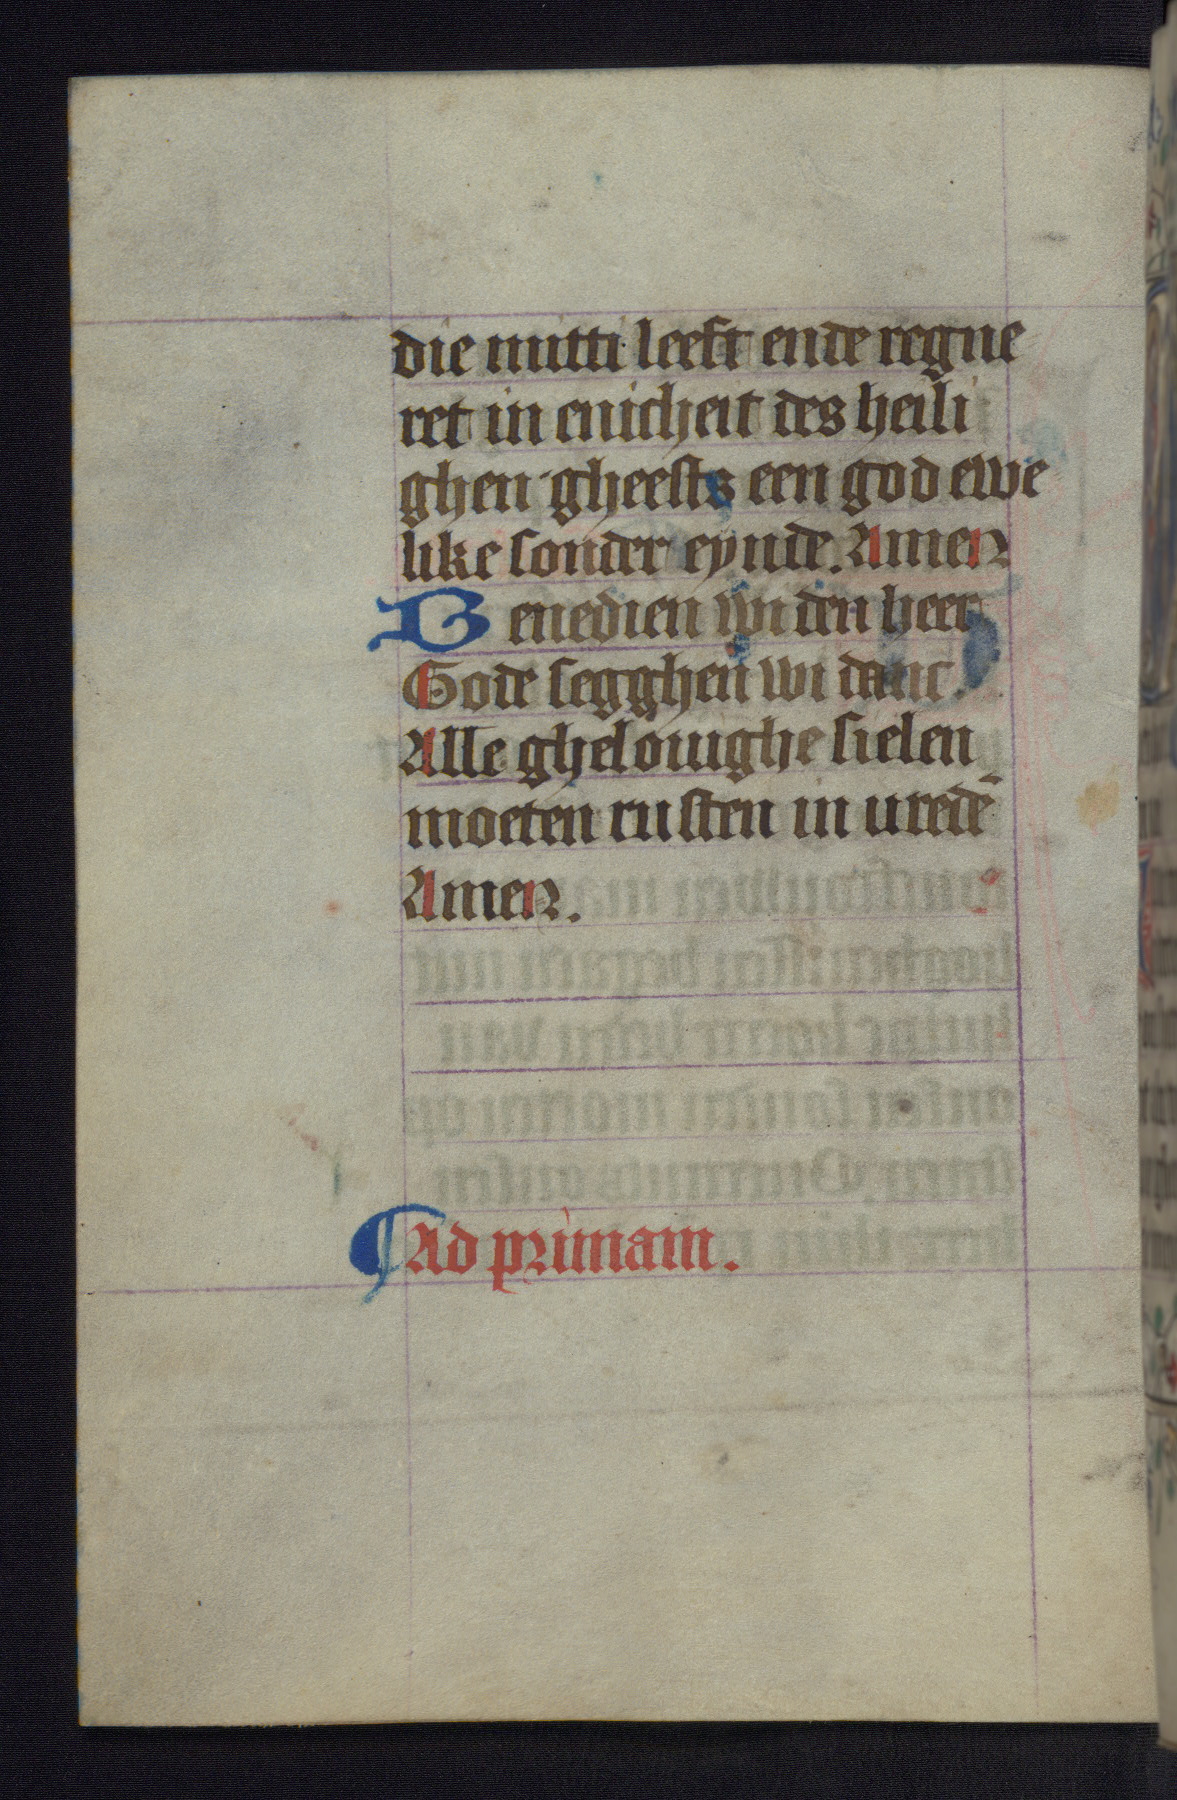 die mitti leeft ende regne
ret in enicheit des heili
ghen gheests een god ewe
like sonder eynde. Amen
Benedien wi den heer
Gode segghen wi danc.
Alle ghelouighe sielen
moeten rusten in uredē
Amen.
¶Ad primam.